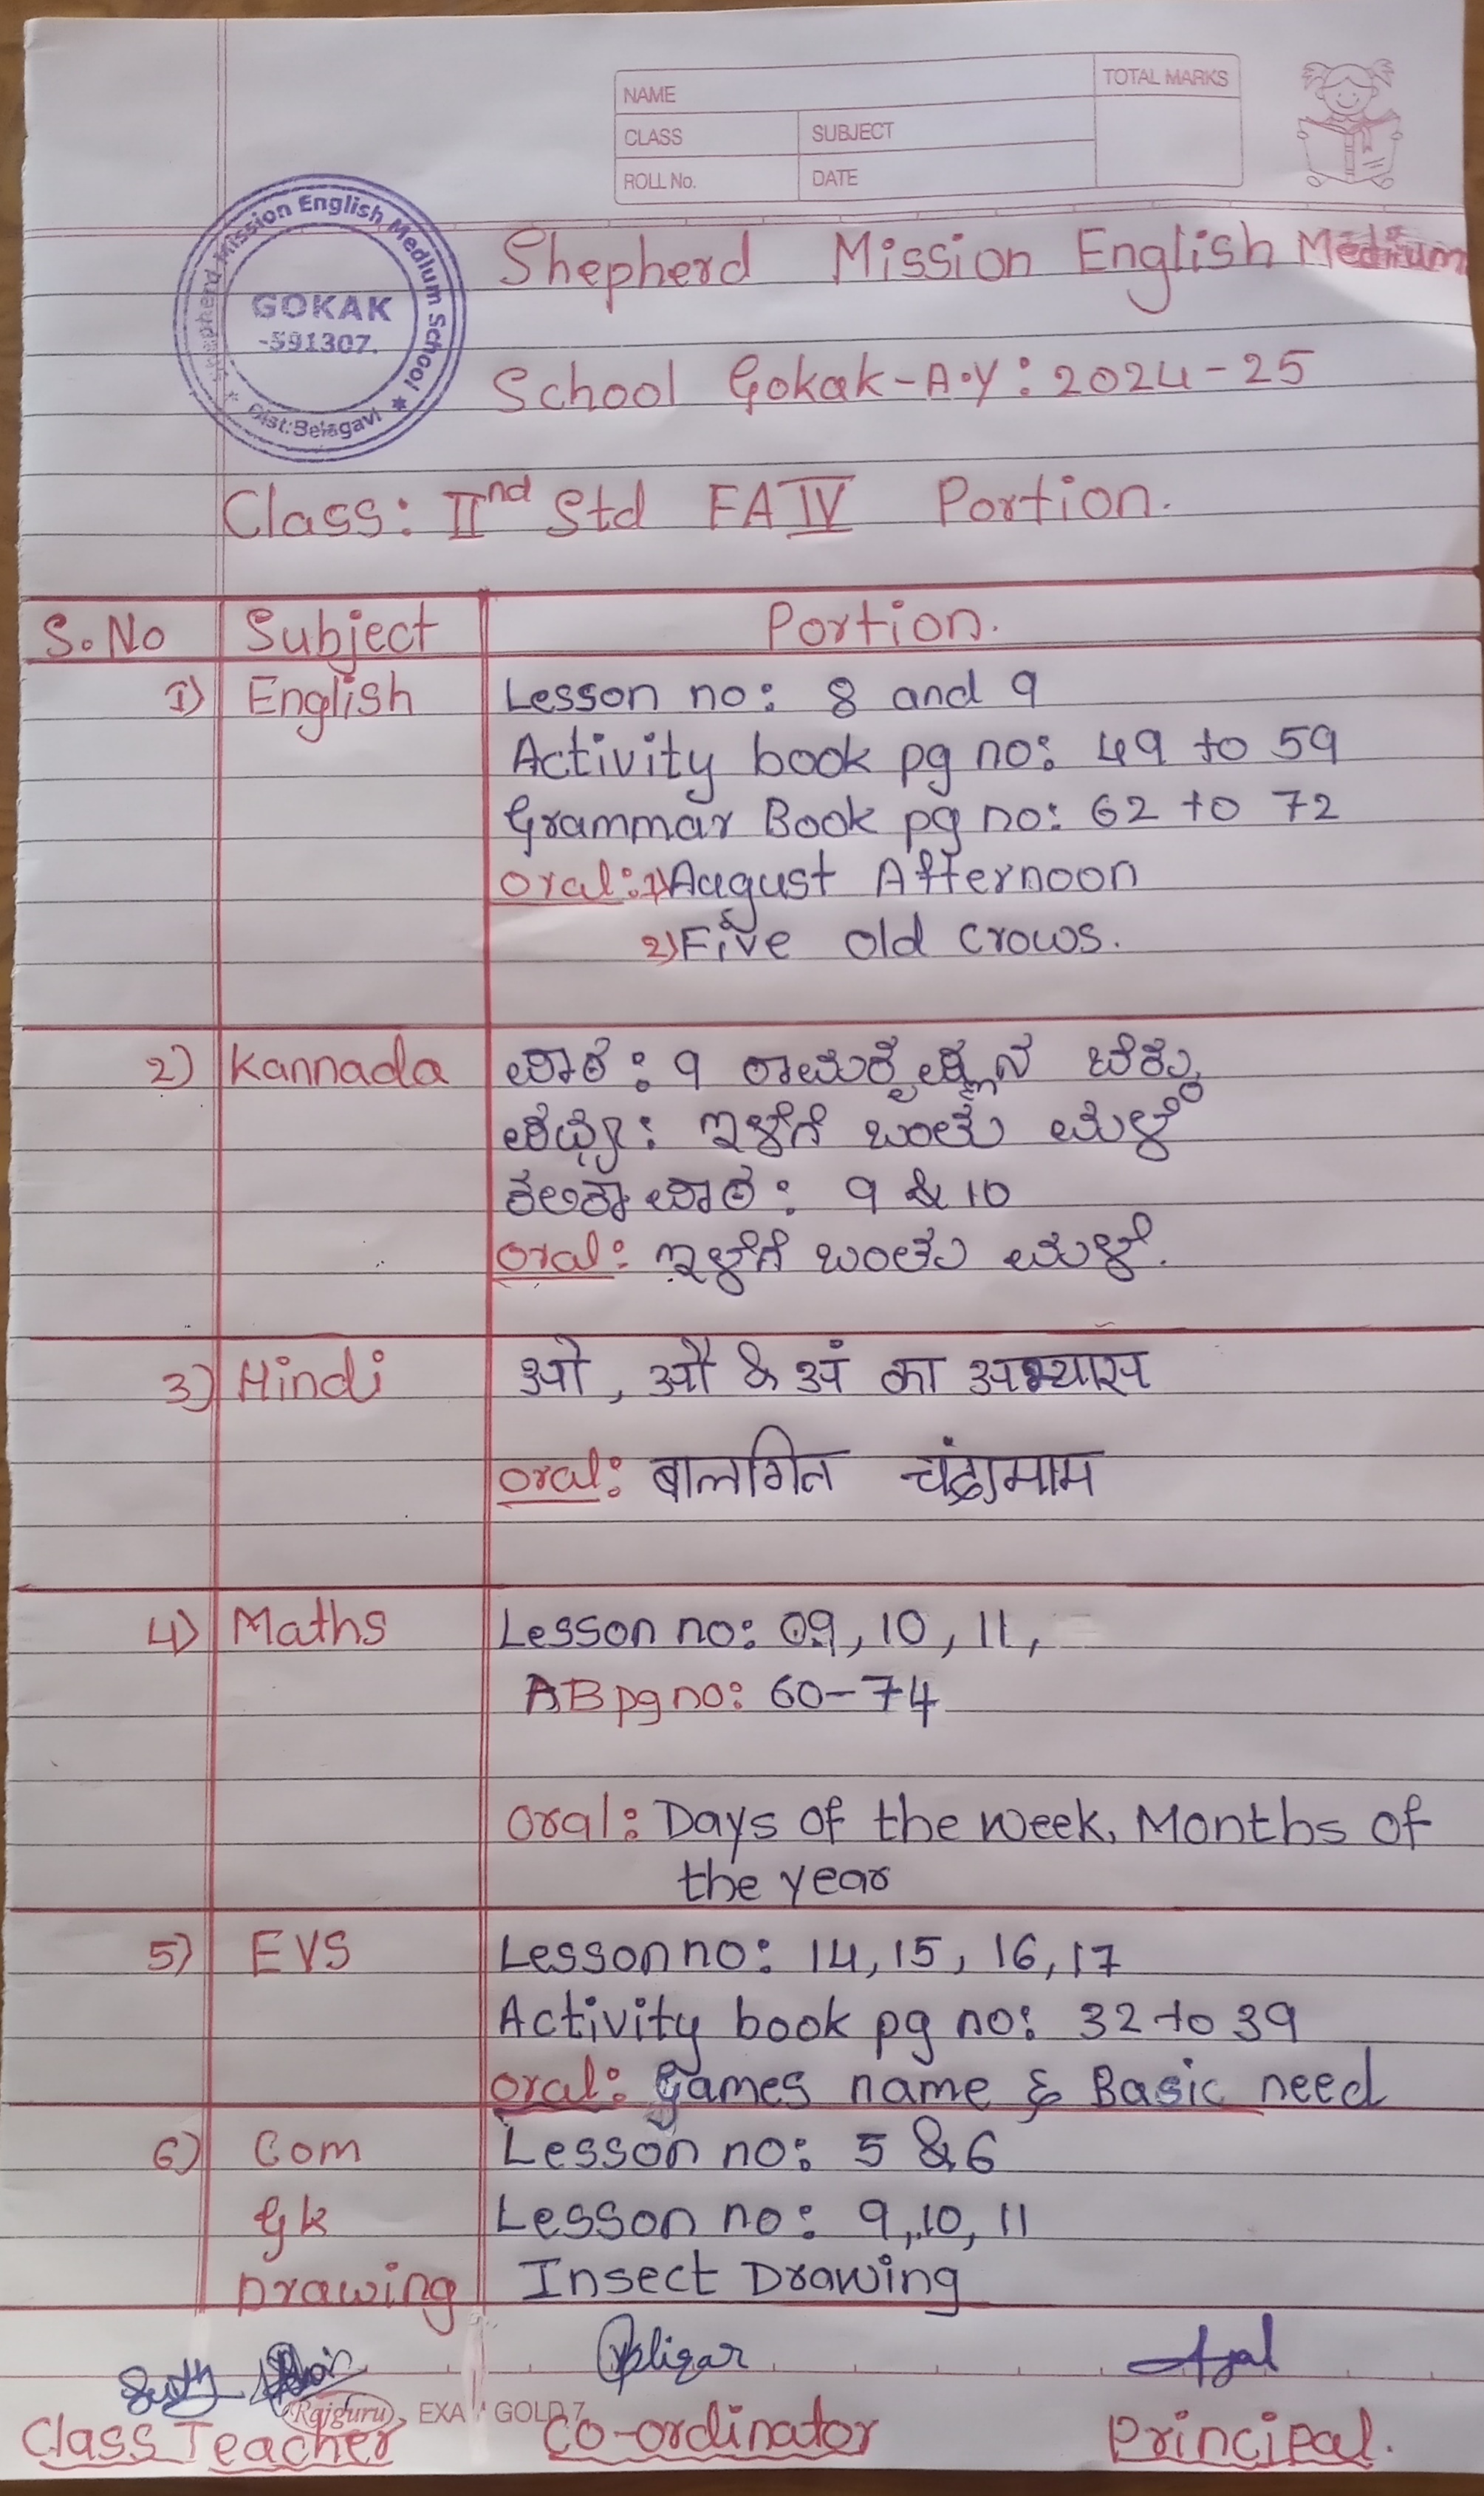 NAME
TOTAL MARKS
CLASS
SUBJECT
ROLL No.
DATE
Shepherd Mission English Medium School
GOKAK
-591307.
Dist:Belagavi
Shepherd Mission English Medium
School Gokak-A.Y: 2024-25
Class: IInd Std FA IV Portion.
S.No Subject Portion.
1) English Lesson no: 8 and 9
Activity book pg no: 49 to 59
Grammar Book pg no: 62 to 72
Oral: 1) August Afternoon
2) Five old crows.
2) Kannada ಪಾಠ: 9 ರಾಮಕೃಷ್ಣನ ಬೆಕ್ಕು
ಪದ್ಯ: ಇಳೆಗೆ ಬಂತು ಮಳೆ
ಕಲಿಕಾ ಪಾಠ: 9 & 10
Oral: ಇಳೆಗೆ ಬಂತು ಮಳೆ.
3) Hindi ओ, औ & अं का अभ्यास
Oral: बालगित चंद्रामाम
4) Maths Lesson no: 09, 10, 11,
AB pg no: 60-74
Oral: Days of the week, Months of
the year
5) EVS Lesson no: 14, 15, 16, 17
Activity book pg no: 32 to 39
Oral: Games name & Basic need
6) Com Lesson no: 5 & 6
Gk Lesson no: 9, 10, 11
Drawing Insect Drawing
Rajguru EXA GOLD 7
Class Teacher Co-ordinator Principal.